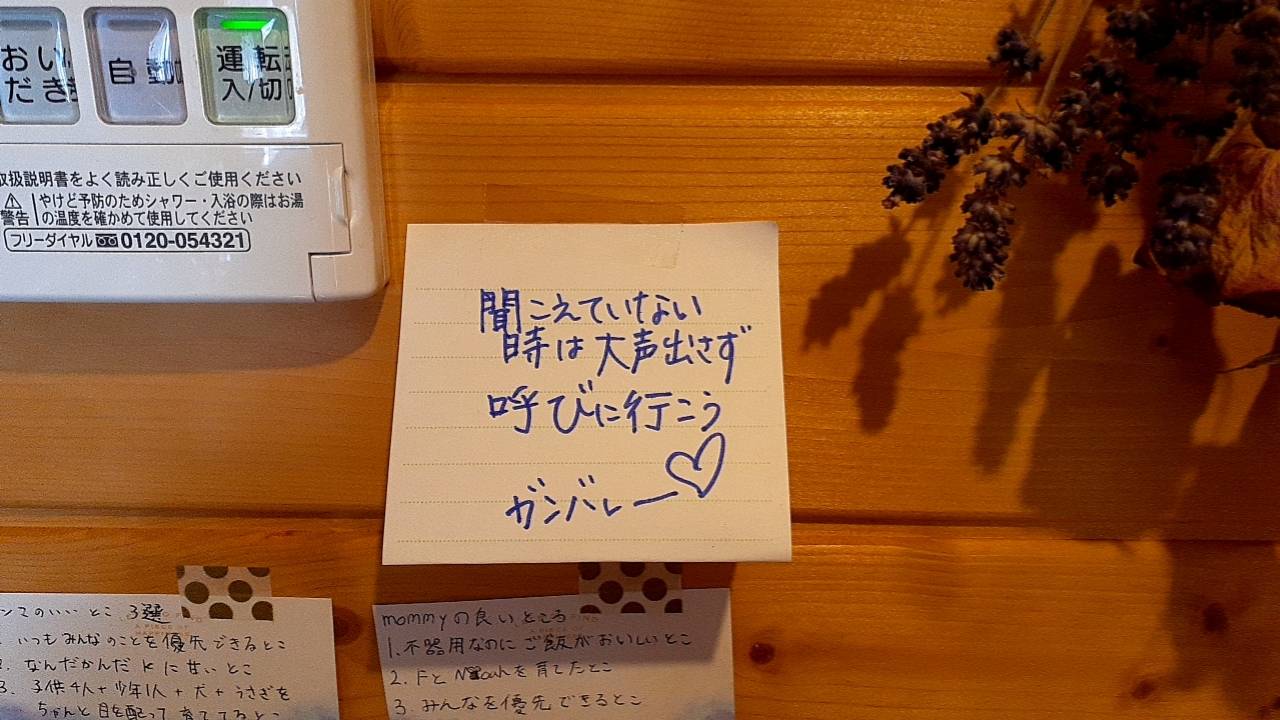 おい
だき
自動
運転
入/切
取扱説明書をよく読み正しくご使用ください
警告
やけど予防のためシャワー・入浴の際はお湯
の温度を確かめて使用してください
フリーダイヤル 0120-054321
聞こえていない
時は大声出さず
呼びに行こう
ガンバレー♡
のいいとこ 3選
いつもみんなのことを優先できるとこ
2. なんだかんだ Kに甘いとこ
3. 子供4人+少年1人+犬+うさぎを
ちゃんと目を配って育ててるとこ
mommyの良いところ
1. 不器用なのにご飯がおいしいとこ
2. FとNoahを育てたとこ
3. みんなを優先できるとこ